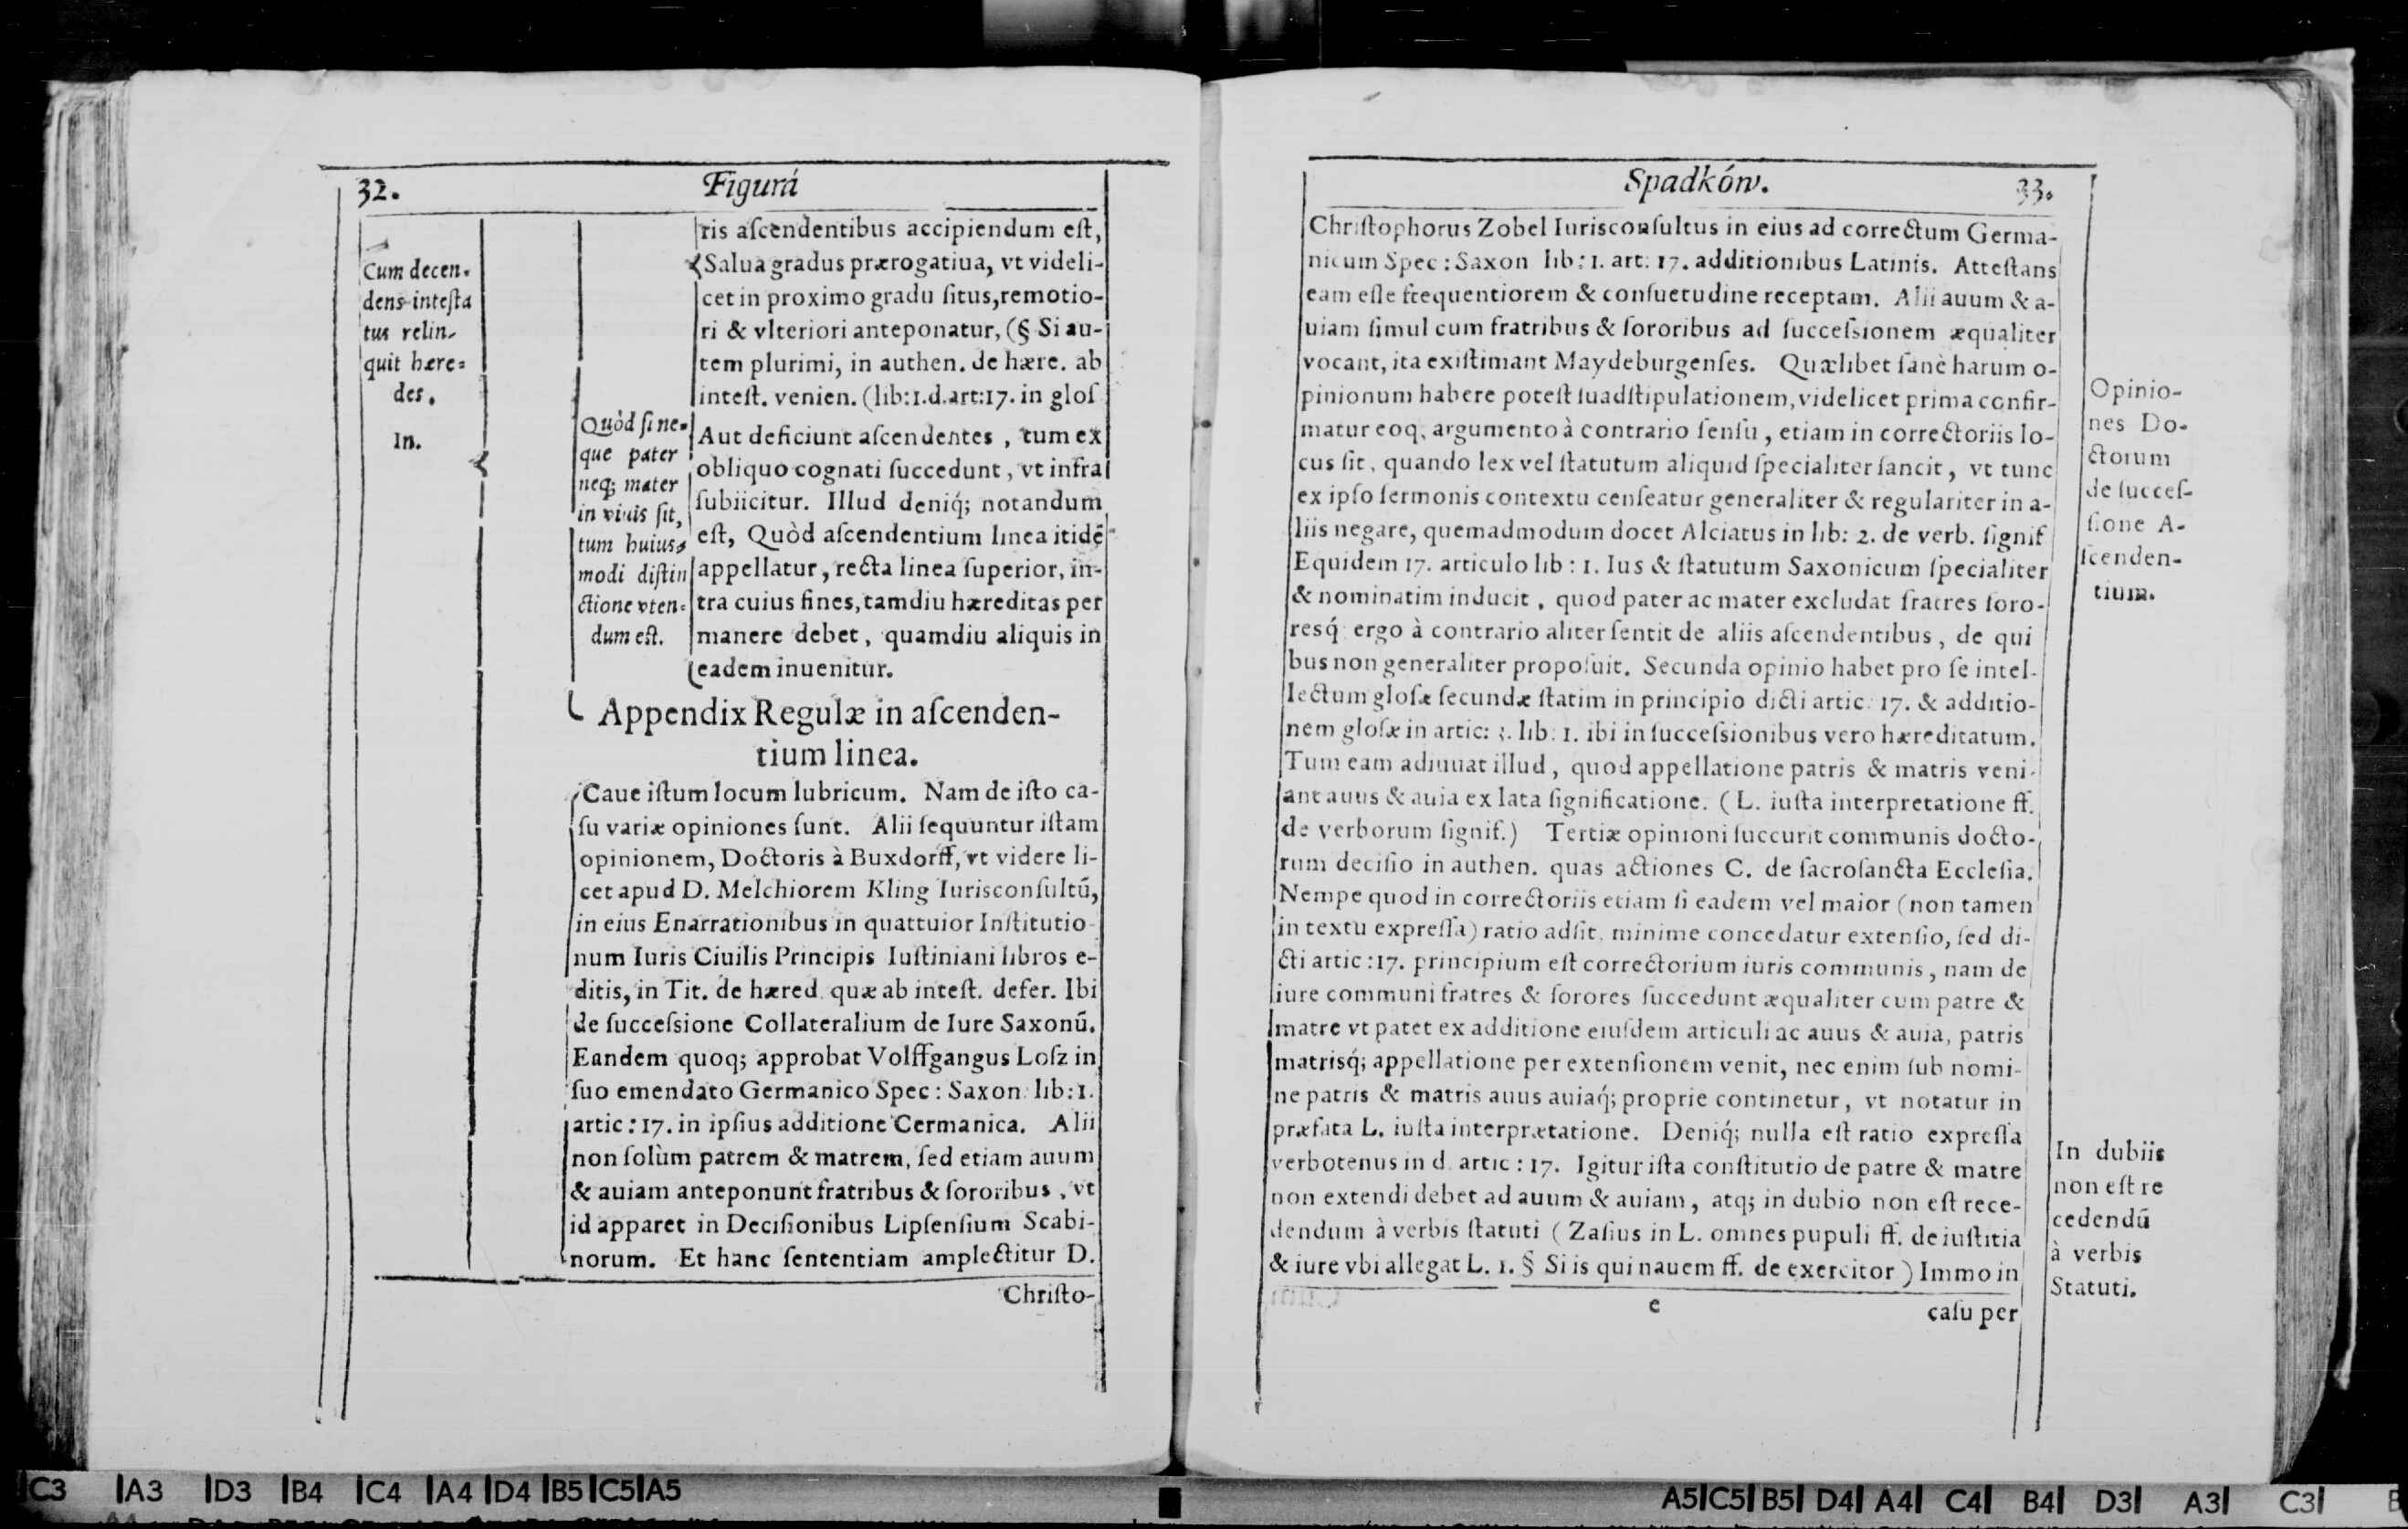 32.
Figurá
Cum decen-
dens intesta
tus relin-
quit hære-
des.
In.
Quòd si ne-
que pater
neq; mater
in viuis sit,
tum huius-
modi distin
ctione vten-
dum est.
ris ascendentibus accipiendum est,
Salua gradus prærogatiua, vt videli-
cet in proximo gradu situs, remotio-
ri & vlteriori anteponatur, (§ Si au-
tem plurimi, in authen. de hære. ab
intest. venien. (lib: 1. d. art: 17. in glos
Aut deficiunt ascendentes, tum ex
obliquo cognati succedunt, vt infra
subiicitur. Illud deniq́; notandum
est, Quòd ascendentium linea itidē
appellatur, recta linea superior, in-
tra cuius fines, tamdiu hæreditas per
manere debet, quamdiu aliquis in
eadem inuenitur.
Appendix Regulæ in ascenden-
tium linea.
Caue istum locum lubricum. Nam de isto ca-
su variæ opiniones sunt. Alii sequuntur istam
opinionem, Doctoris à Buxdorff, vt videre li-
cet apud D. Melchiorem Kling Iurisconsultū,
in eius Enarrationibus in quattuior Institutio-
num Iuris Ciuilis Principis Iustiniani libros e-
ditis, in Tit. de hæred. quæ ab intest. defer. Ibi
de successione Collateralium de Iure Saxonū.
Eandem quoq; approbat Volffgangus Losz in
suo emendato Germanico Spec: Saxon. lib: 1.
artic: 17. in ipsius additione Cermanica. Alii
non solùm patrem & matrem, sed etiam auum
& auiam anteponunt fratribus & sororibus, vt
id apparet in Decisionibus Lipsensium Scabi-
norum. Et hanc sententiam amplectitur D.
Christo-
Spadków.
33.
Christophorus Zobel Iurisconsultus in eius ad correctum Germa-
nicum Spec: Saxon lib: 1. art: 17. additionibus Latinis. Attestans
eam esse frequentiorem & consuetudine receptam. Alii auum & a-
uiam simul cum fratribus & sororibus ad successionem æqualiter
vocant, ita existimant Maydeburgenses. Quælibet sanè harum o-
pinionum habere potest suadstipulationem, videlicet prima confir-
matur eoq, argumento à contrario sensu, etiam in correctoriis lo-
cus sit, quando lex vel statutum aliquid specialiter sancit, vt tunc
ex ipso sermonis contextu censeatur generaliter & regulariter in a-
liis negare, quemadmodum docet Alciatus in lib: 2. de verb. signif
Equidem 17. articulo lib: 1. Ius & statutum Saxonicum specialiter
& nominatim inducit, quod pater ac mater excludat fratres soro-
resq́ ergo à contrario aliter sentit de aliis ascendentibus, de qui
bus non generaliter proposuit. Secunda opinio habet pro se intel-
lectum glosæ secundæ statim in principio dicti artic. 17. & additio-
nem glosæ in artic: 3. lib: 1. ibi in successionibus vero hæreditatum.
Tum eam adiuuat illud, quod appellatione patris & matris veni-
ant auus & auia ex lata significatione. (L. iusta interpretatione ff.
de verborum signif.) Tertiæ opinioni succurit communis docto-
rum decisio in authen. quas actiones C. de sacrosancta Ecclesia.
Nempe quod in correctoriis etiam si eadem vel maior (non tamen
in textu expressa) ratio adsit, minime concedatur extensio, sed di-
cti artic: 17. principium est correctorium iuris communis, nam de
iure communi fratres & sorores succedunt æqualiter cum patre &
matre vt patet ex additione eiusdem articuli ac auus & auia, patris
matrisq́; appellatione per extensionem venit, nec enim sub nomi-
ne patris & matris auus auiaq́; proprie continetur, vt notatur in
præfata L. iusta interprætatione. Deniq́; nulla est ratio expressa
verbotenus in d. artic: 17. Igitur ista constitutio de patre & matre
non extendi debet ad auum & auiam, atq; in dubio non est rece-
dendum à verbis statuti (Zasius in L. omnes pupuli ff. de iustitia
& iure vbi allegat L. 1. § Si is qui nauem ff. de exercitor) Immo in
e
casu per
Opinio-
nes Do-
ctorum
de succes-
sione A-
scenden-
tium.
In dubiis
non est re
cedendū
à verbis
Statuti.
C3 A3 D3 B4 C4 A4 D4 B5 C5 A5
A5 C5 B5 D4 A4 C4 B4 D3 A3 C3